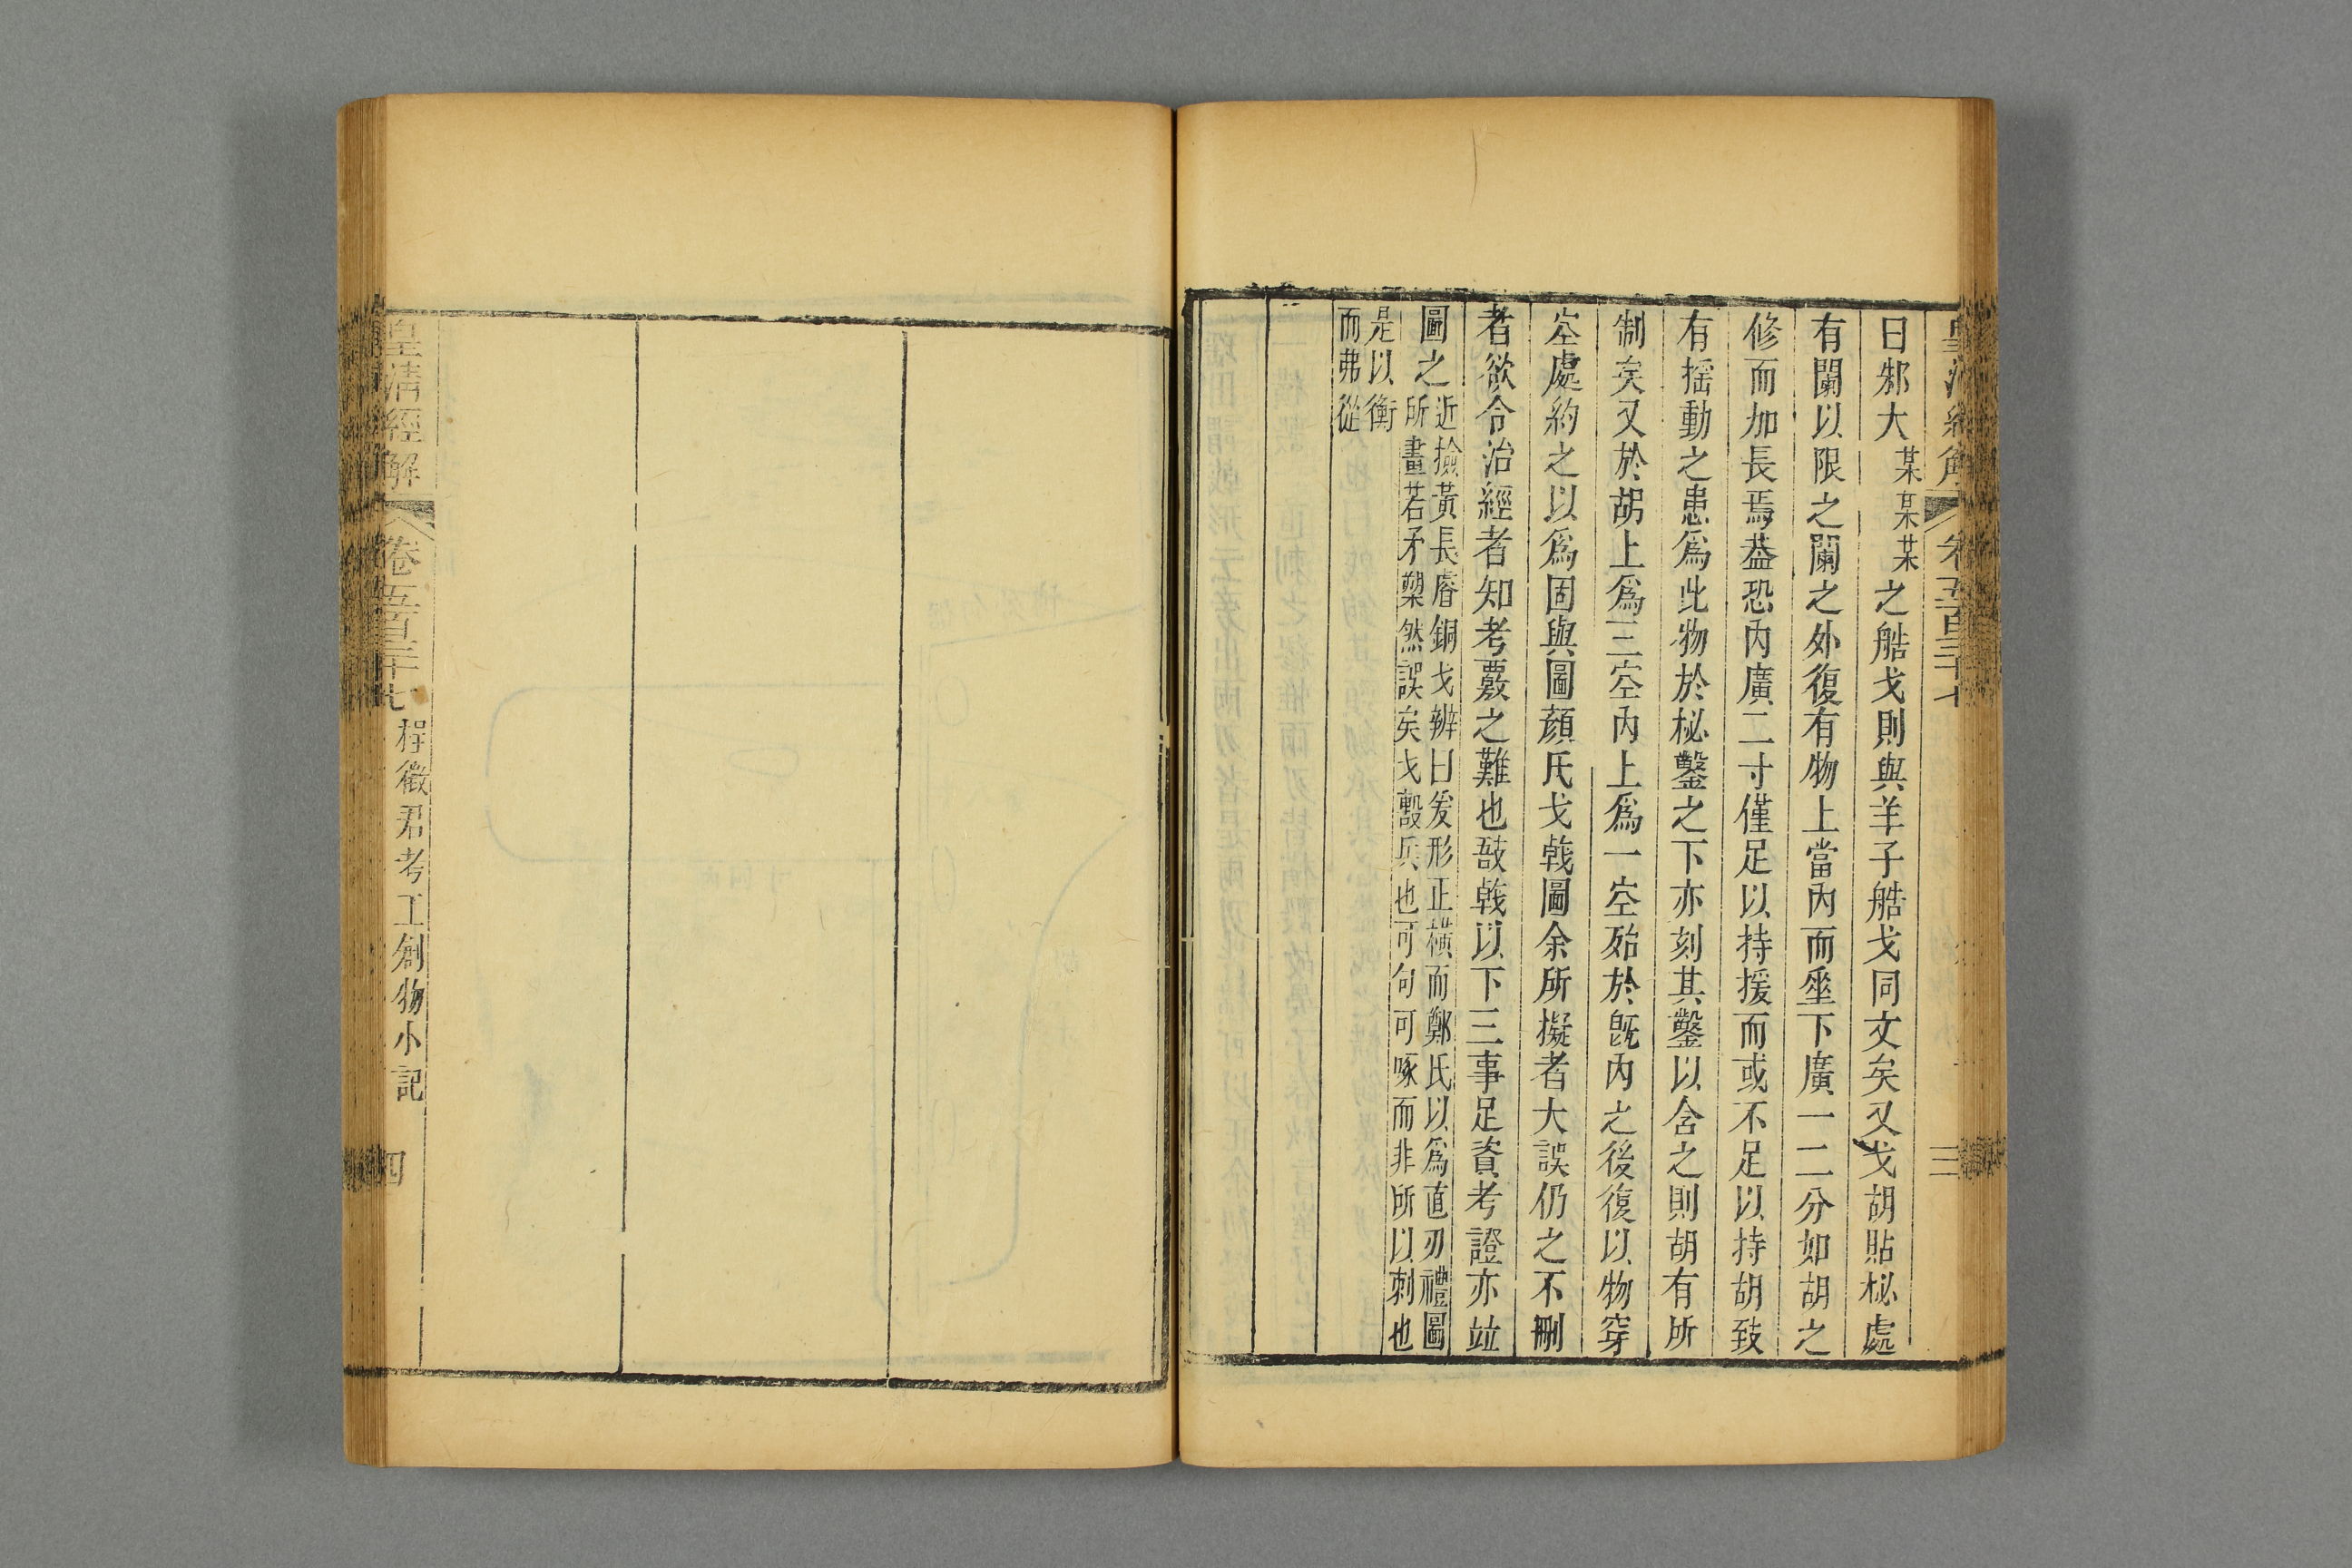 曰邾大某某某之艁戈則與羊子艁戈同文矣又戈胡貼柲處
有闌以限之闌之外復有物上當內而𡋲下廣一二分如胡之
修而加長焉葢恐內廣二寸僅足以持援而或不足以持胡致
有搖動之患爲此物於柲鑿之下亦刻其鑿以含之則胡有所
制矣又於胡上爲三空內上爲一空殆於旣內之後復以物穿
空處約之以爲固與圖顏氏戈戟圖余所擬者大誤仍之不刪
者欲令治經者知考覈之難也敔戟以下三事足資考證亦竝
圖之近撿黃長睿銅戈辨曰爰形正橫而鄭氏以爲直刃禮圖
所畫若矛槊然誤矣戈嗀兵也可句可啄而非所以刺也
是以衡
而弗從
皇清經解
卷五百三十七
三
皇清經解
卷五百三十七
程徵君考工創物小記
四